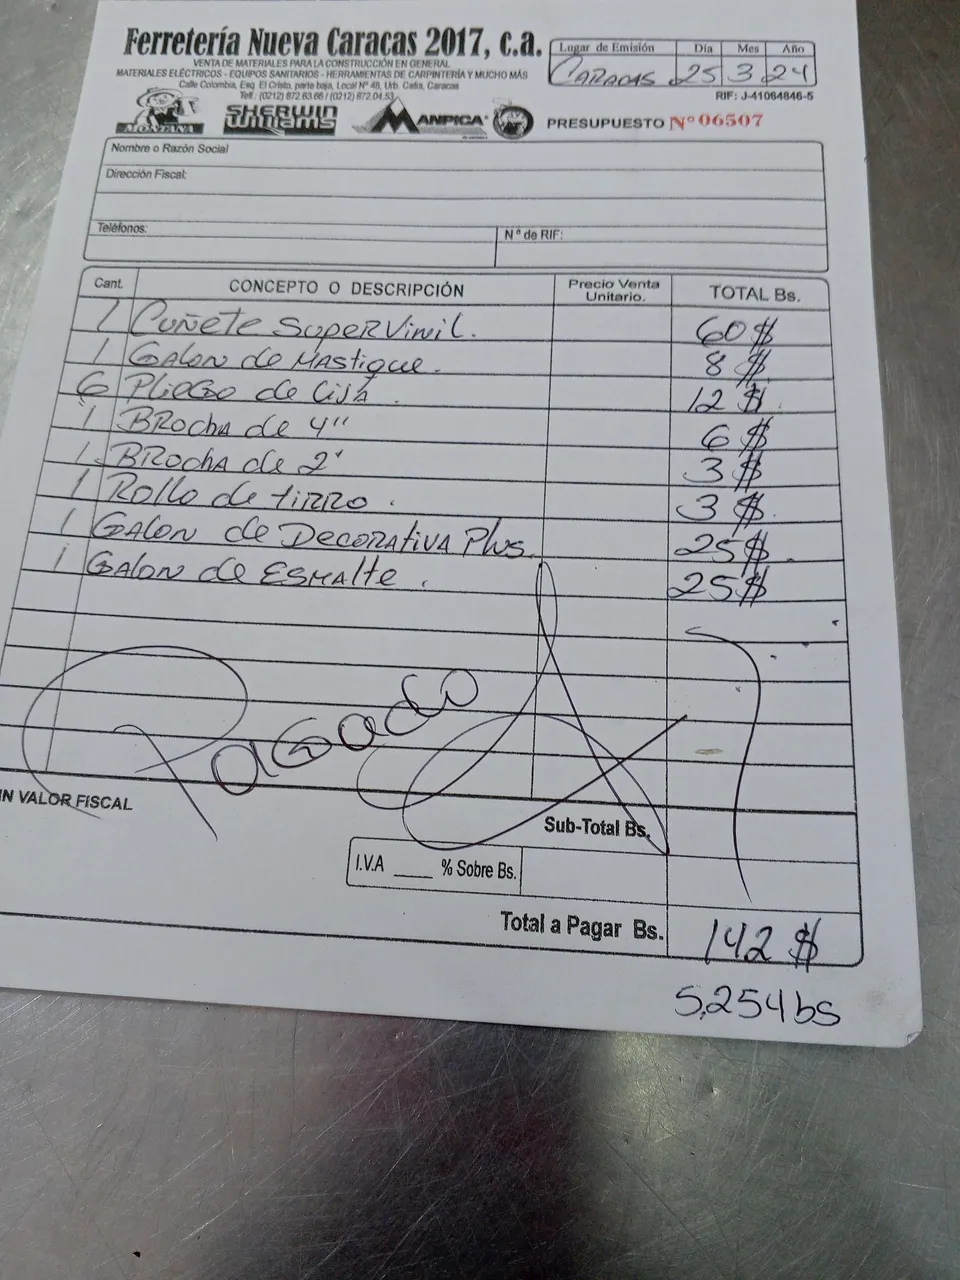 Ferretería Nueva Caracas 2017, c.a.
VENTA DE MATERIALES PARA LA CONSTRUCCIÓN EN GENERAL
MATERIALES ELÉCTRICOS - EQUIPOS SANITARIOS - HERRAMIENTAS DE CARPINTERÍA Y MUCHO MÁS
Calle Colombia, Esq. El Cristo, parte baja, Local Nº 48, Urb. Catia, Caracas
Telf.: (0212) 872.63.66 / (0212) 872.04.53
Lugar de Emisión Día Mes Año
CARACAS 25 3 24
RIF: J-41064846-5
MONTANA SHERWIN WILLIAMS MANPICA
PRESUPUESTO Nº 06507
Nombre o Razón Social
Dirección Fiscal:
Teléfonos: Nº de RIF:
Cant. CONCEPTO O DESCRIPCIÓN Precio Venta Unitario. TOTAL Bs.
1 Cuñete SuperVinil. 60$
1 Galon de Mastique. 8$
6 Pliego de Lija. 12$
1 Brocha de 4" 6$
1 Brocha de 2' 3$
1 Rollo de tirro. 3$
1 Galon de Decorativa Plus. 25$
1 Galon de Esmalte. 25$
Pagado
IN VALOR FISCAL
Sub-Total Bs.
I.V.A ____ % Sobre Bs.
Total a Pagar Bs. 142 $
5,254 bs